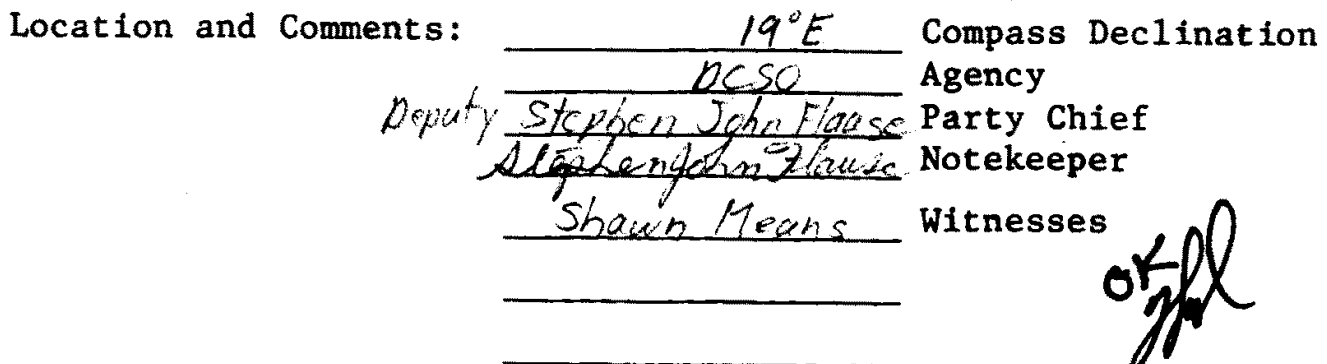 Location and Comments: 19°E Compass Declination
DCSO Agency
Deputy Stephen John Flaase Party Chief
Stephen John Flaase Notekeeper
Shawn Means Witnesses
OK